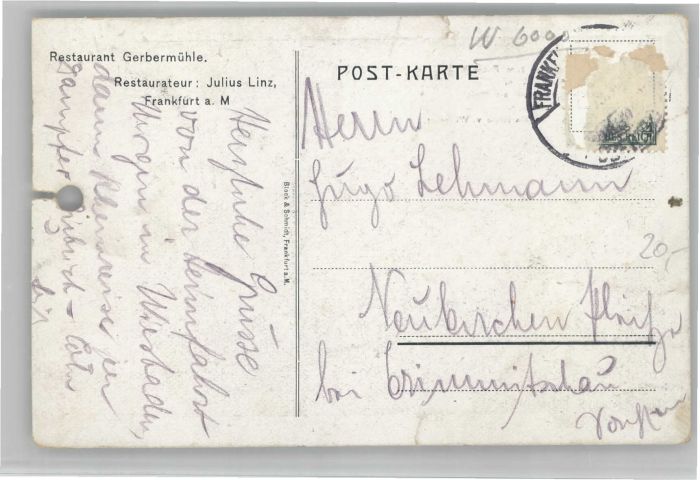 Restaurant Gerbermühle.
Restaurateur: Julius Linz,
Frankfurt a. M
Herzliche Grüsse
von der Heimfahrt
Morgen in Wiesbaden,
dann Rheinreise per
Dampfer
Cöln
Block & Schmidt, Frankfurt a. M.
W 6000
POST-KARTE
FRANKF
Herrn
Hugo Lehmann
20,-
Neukirchen Pleiße
bei Crimmitschau